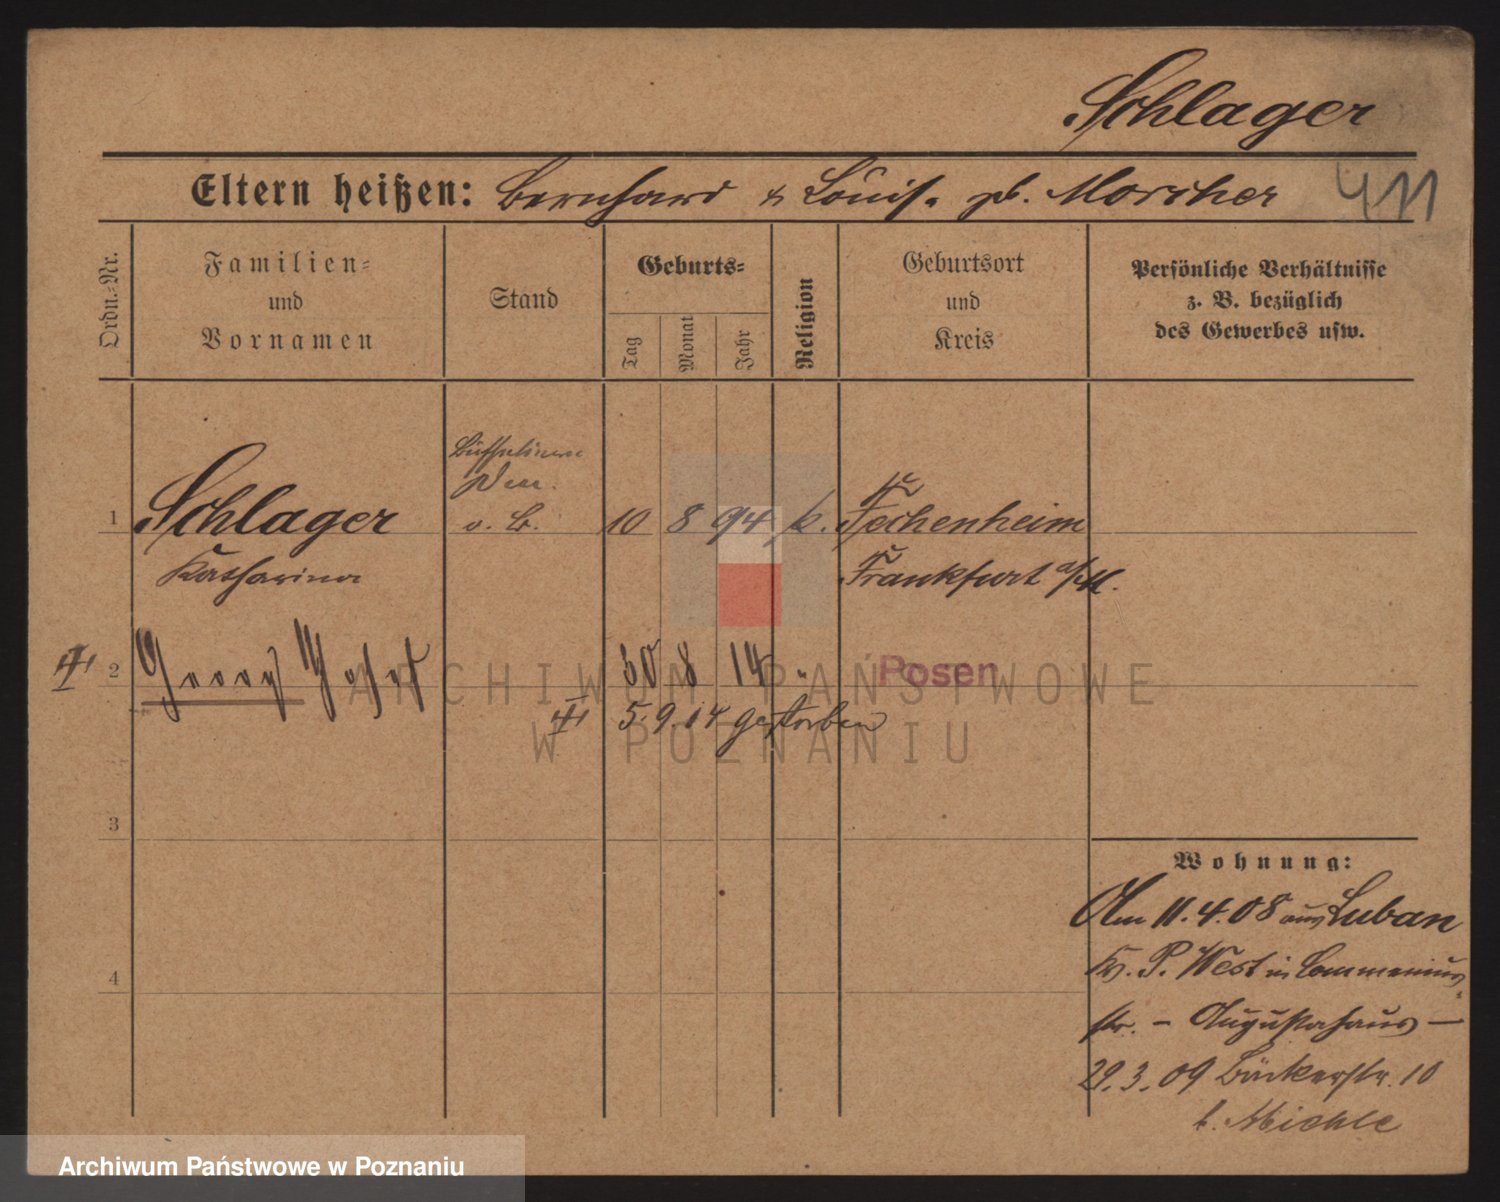 Schlager
Eltern heißen: Bernhard & Louis. gb. Morscher
411
Ordn.-Nr.
Familien-
und
Vornamen
Stand
Geburts-
Tag
Monat
Jahr
Religion
Geburtsort
und
Kreis
Persönliche Verhältnisse
z. B. bezüglich
des Gewerbes usw.
1 Schlager 10 8 94 k. Fechenheim
Katharina Frankfurt a/M.
2 Georg 30 8 14 " Posen
5.9.14 gestorben
3
4
Wohnung:
Am 11.4.08 aus Luban
Kr. P. West in Commenius
str. – Augustahaus –
29.3.09 Bäckerstr. 10
b. Michle
ARCHIWUM PAŃSTWOWE
W POZNANIU
Archiwum Państwowe w Poznaniu